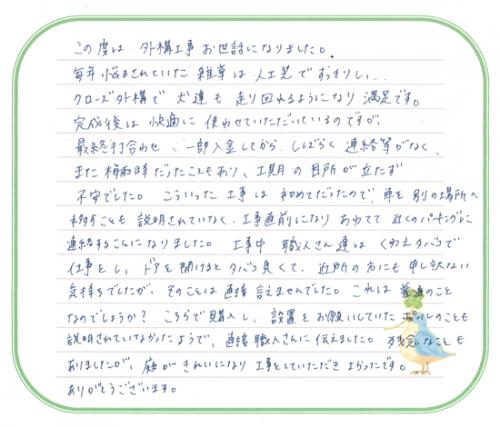 この度は 外構工事 お世話になりました。
毎年悩まされていた 雑草は 人工芝で すっきりし、、
クローズ外構で 犬達も 走り回れるようになり 満足です。
完成後は 快適に 使わせていただいているのですが
最終打合わせ、一部入金してから、しばらく 連絡等がなく、
また 梅雨時だったこともあり、工期の 目所が 立たず
不安でした。 こういった 工事は 初めてだったので、車を 別の場所へ
移すことも 説明されていなく、工事直前になり あわてて 近くのパーキングに
連絡することに なりました。 工事中 職人さん達は くわえタバコで
仕事をし、ドアを 開けると タバコ臭くて、近所の方にも 申し訳ない
気持ちでしたが、そのことは 直接 言えませんでした。 これは 普通のこと
なのでしょうか? こちらで購入し、設置を お願いしていた ポールのことも
説明されていなかったようで、直接 職人さんに 伝えました。 残念なことも
ありましたが、庭が きれいになり 工事をしていただき よかったです。
ありがとうございます。